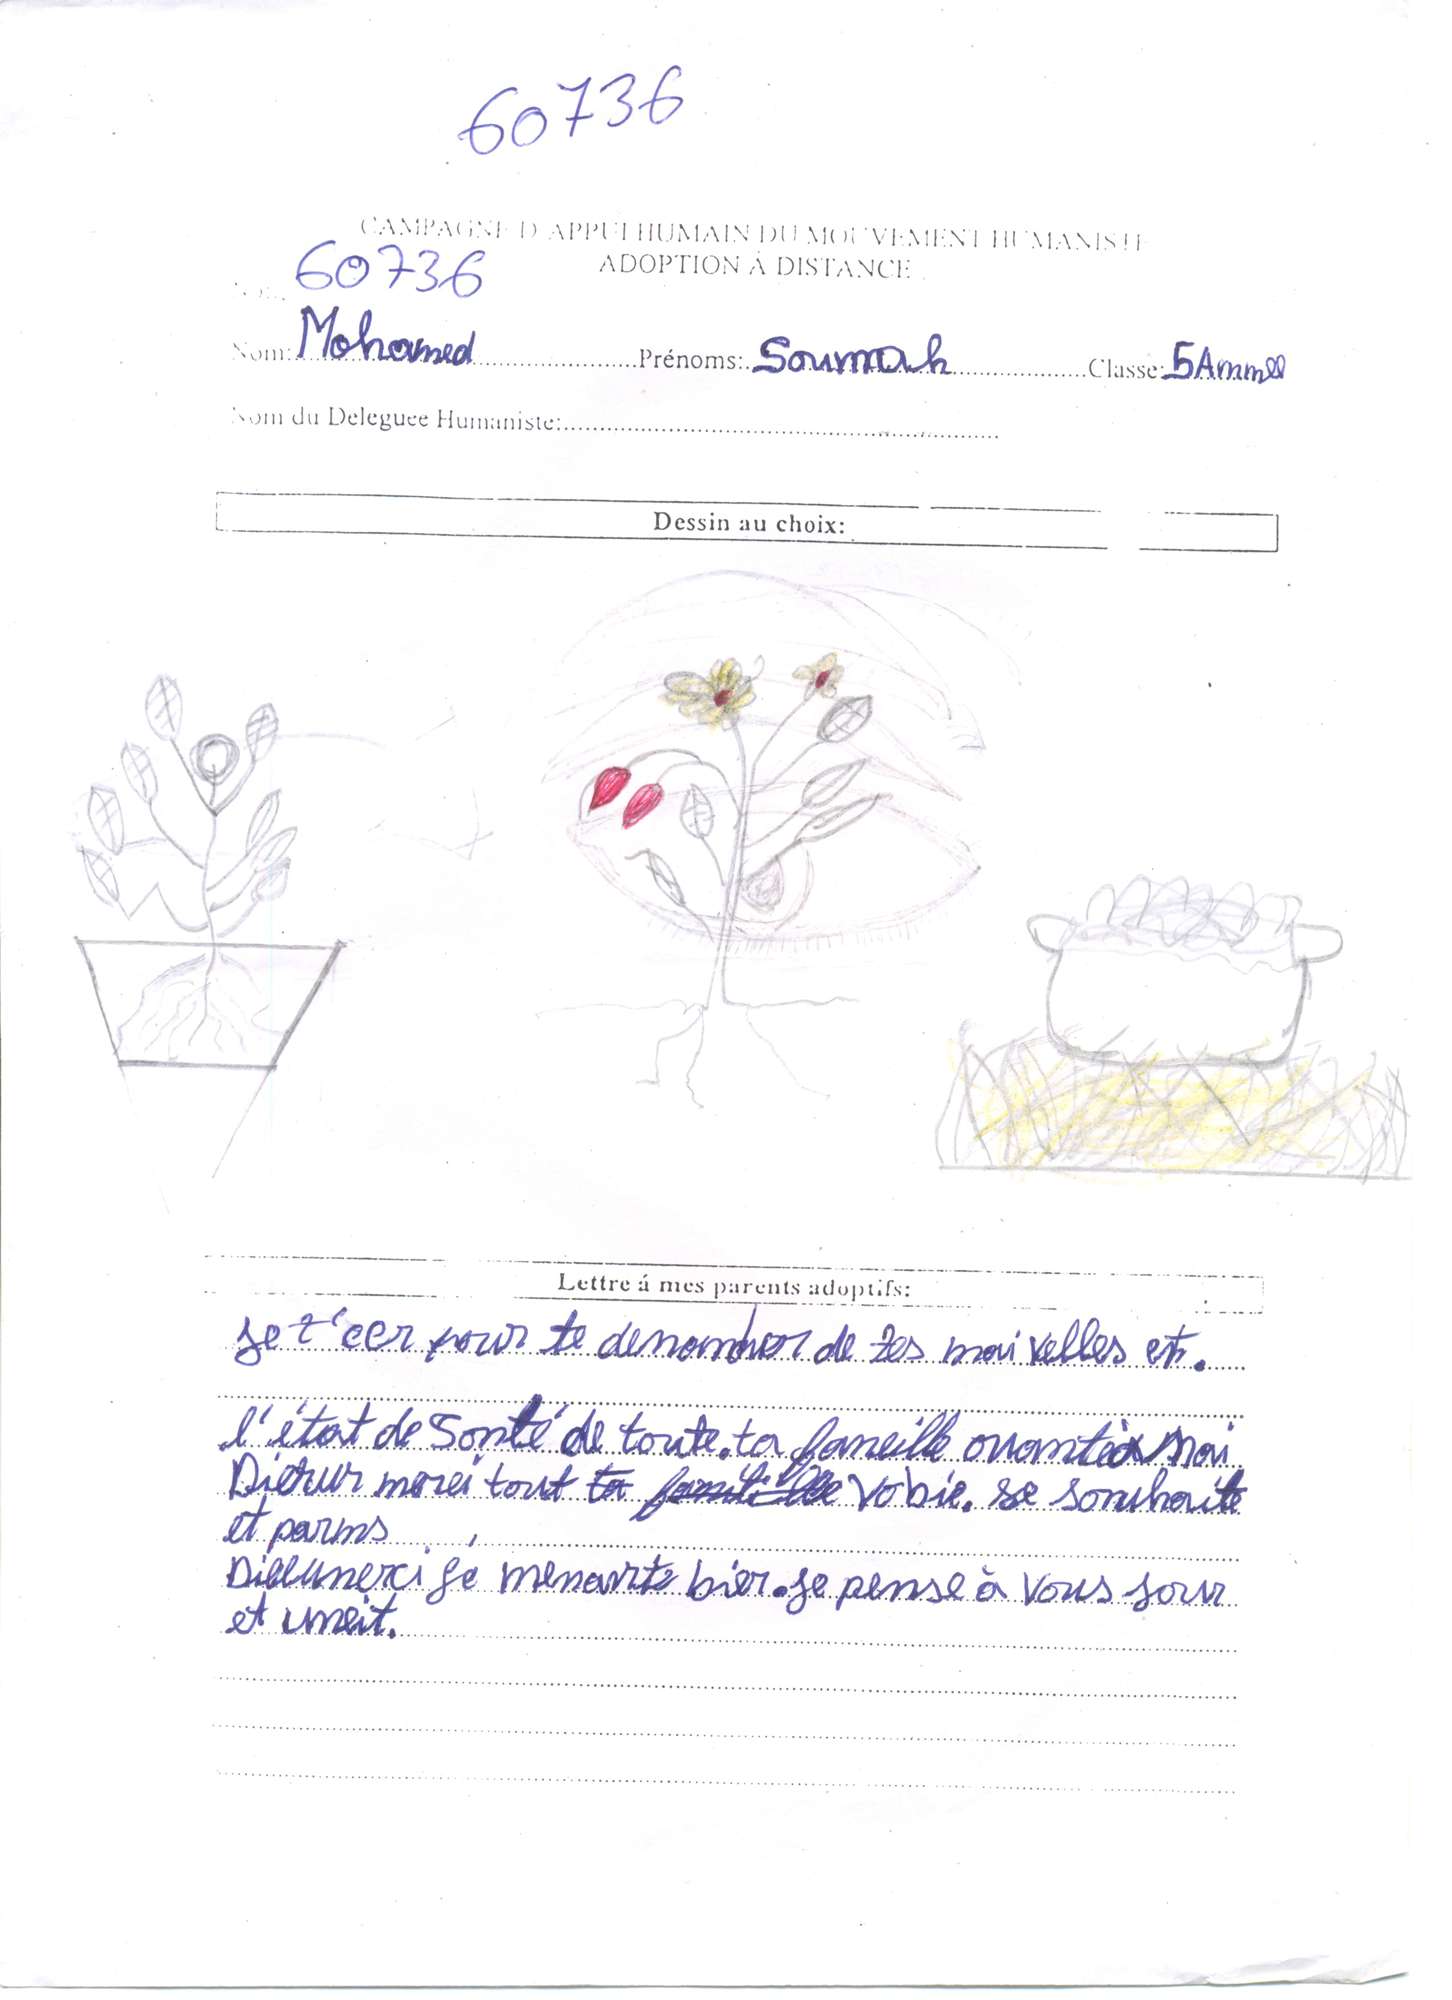 60736
CAMPAGNE D'APPUI HUMAIN DU MOUVEMENT HUMANISTE
ADOPTION À DISTANCE
60736
Nom: Mohamed Prénoms: Soumah Classe: 5Ammee
Nom du Deleguee Humaniste:
Dessin au choix:
Lettre á mes parents adoptifs:
Je t'ecr pour te demander de tes nouvelles et.
l'état de Sonté de toute. ta fameille quantià moi
Dieur merci tout ta famille va bie. Je souhaite
et parms
Dieumerci je menarte bier. Je pense à vous jour
et uneit.